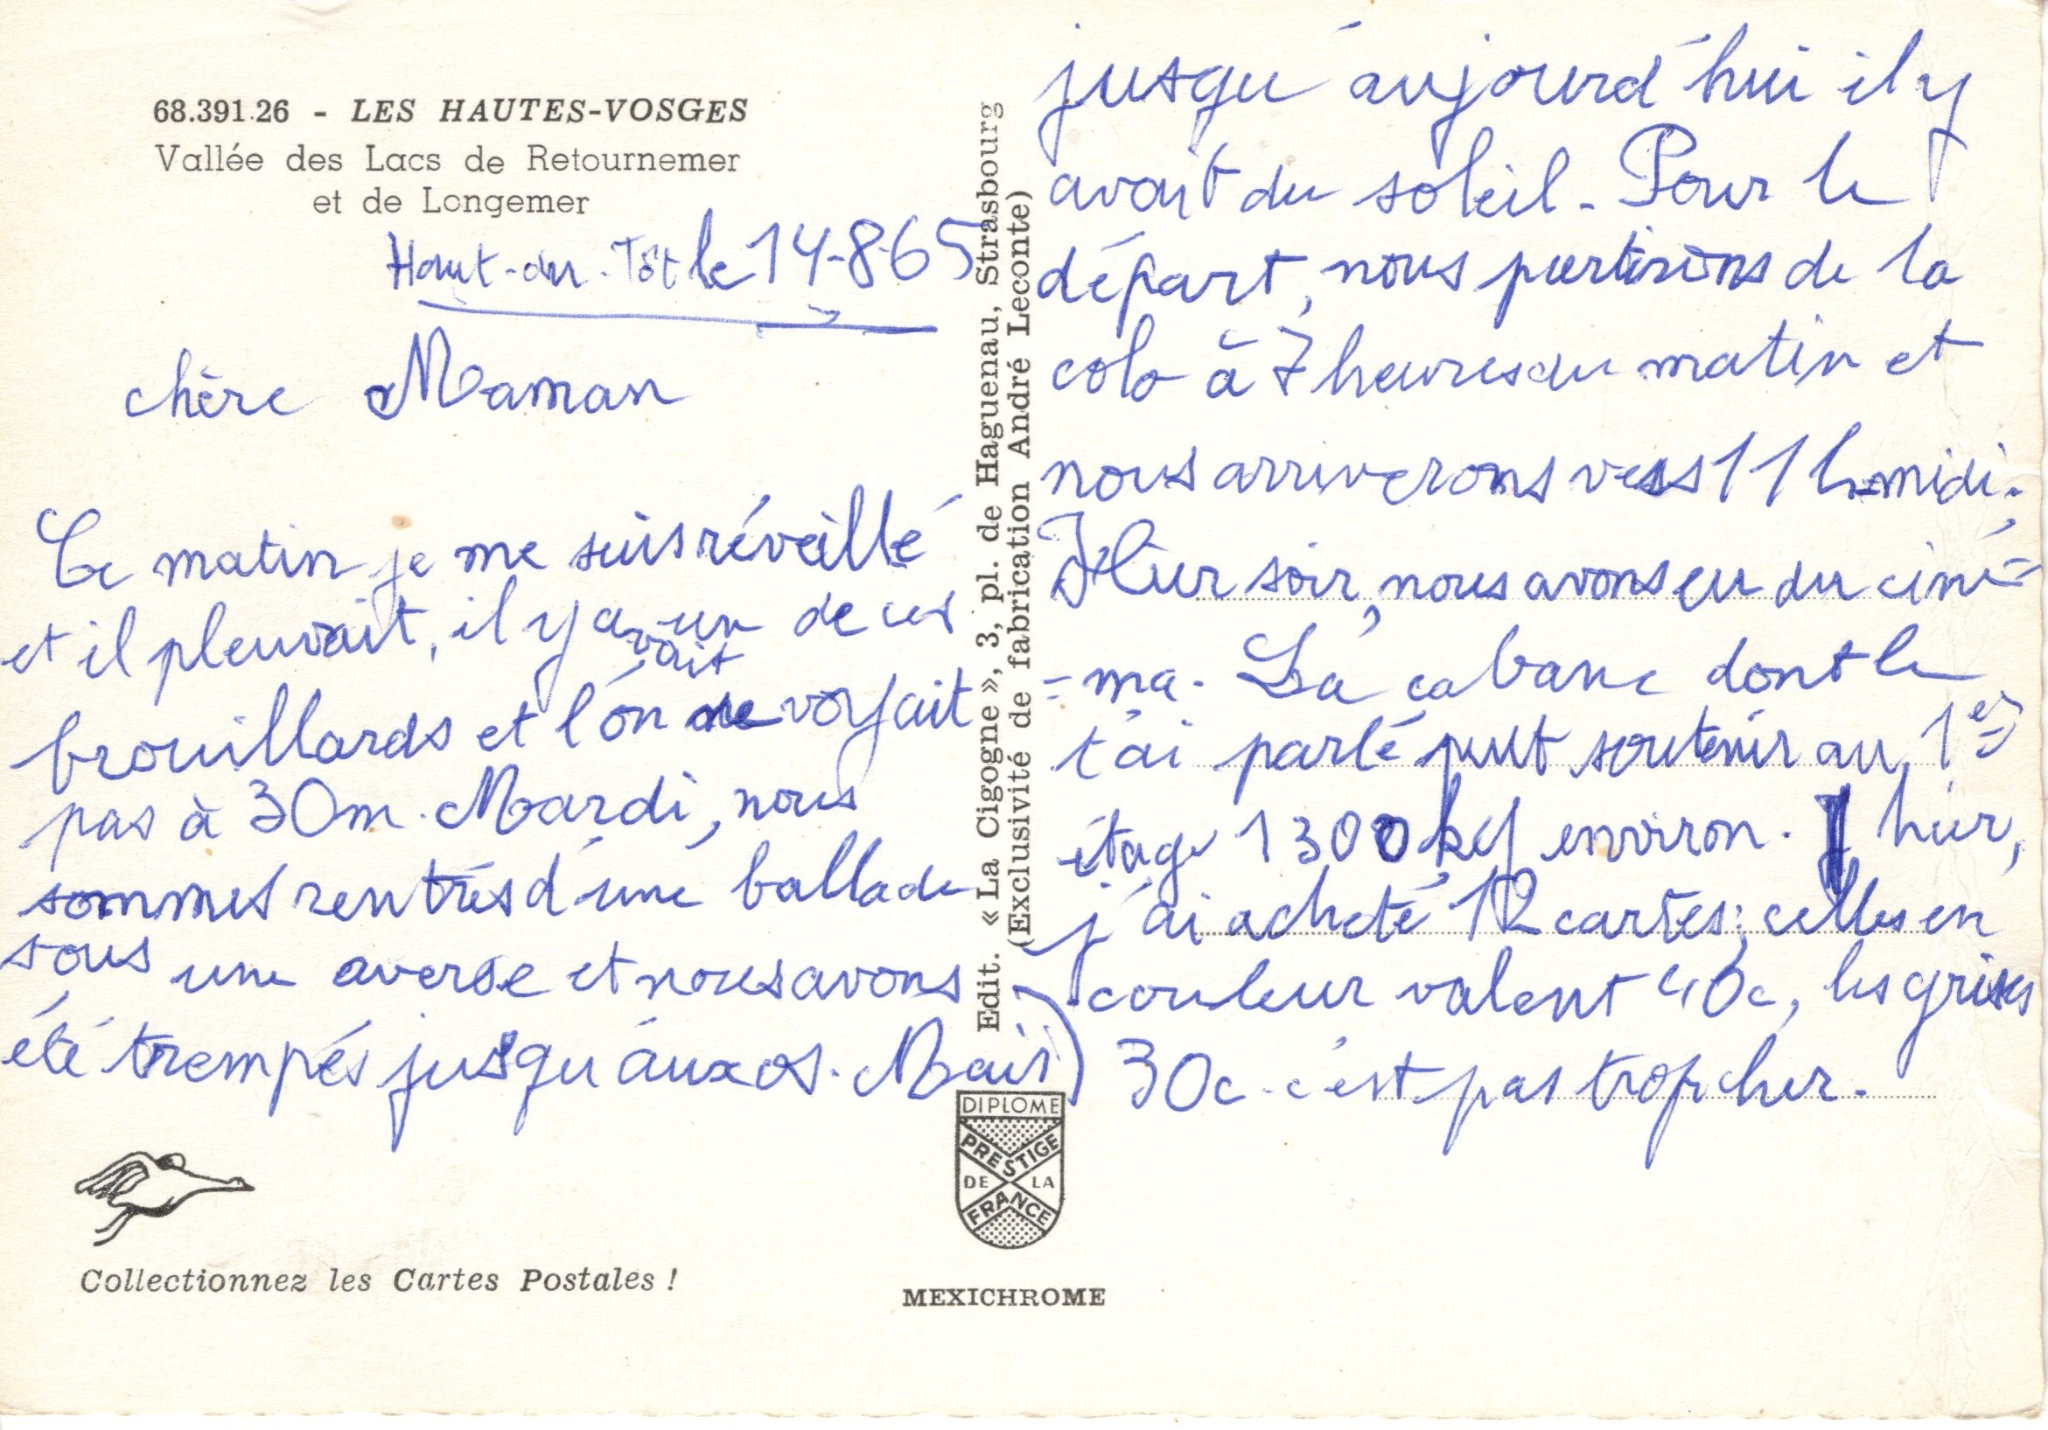 68.391.26 - LES HAUTES-VOSGES
Vallée des Lacs de Retournemer
et de Longemer
Haut-du-Tôt le 14-8-65
chère Maman
Ce matin je me suis réveillé
et il pleuvait, il y avait un de ces
brouillards et l'on ne voyait
pas à 30m. Mardi, nous
sommes rentrés d'une ballade
sous une averse et nous avons
été trempés jusqu'aux os. Mais
jusqu'aujourd'hui il y
avait du soleil. Pour le
départ, nous partirons de la
colo à 7 heures du matin et
nous arriverons vers 11 h-midi.
Hier soir, nous avons eu du ciné=
=ma. La cabane dont je
t'ai parlé peut soutenir au 1er
étage 1300kg environ. hier,
j'ai acheté 12 cartes; celles en
couleur valent 40c, les grises
30c. c'est pas trop cher.
Edit. «La Cigogne», 3, pl. de Haguenau, Strasbourg
(Exclusivité de fabrication André Leconte)
DIPLOME
PRESTIGE
DE LA
FRANCE
Collectionnez les Cartes Postales !
MEXICHROME